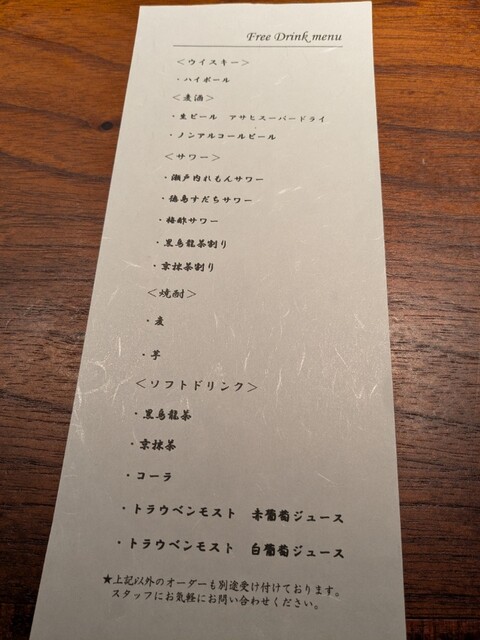 Free Drink menu
＜ウイスキー＞
・ハイボール
＜麦酒＞
・生ビール　アサヒスーパードライ
・ノンアルコールビール
＜サワー＞
・瀬戸内れもんサワー
・徳島すだちサワー
・梅酢サワー
・黒烏龍茶割り
・京抹茶割り
＜焼酎＞
・麦
・芋
＜ソフトドリンク＞
・黒烏龍茶
・京抹茶
・コーラ
・トラウベンモスト　赤葡萄ジュース
・トラウベンモスト　白葡萄ジュース
★上記以外のオーダーも別途受け付けております。
スタッフにお気軽にお問い合わせください。